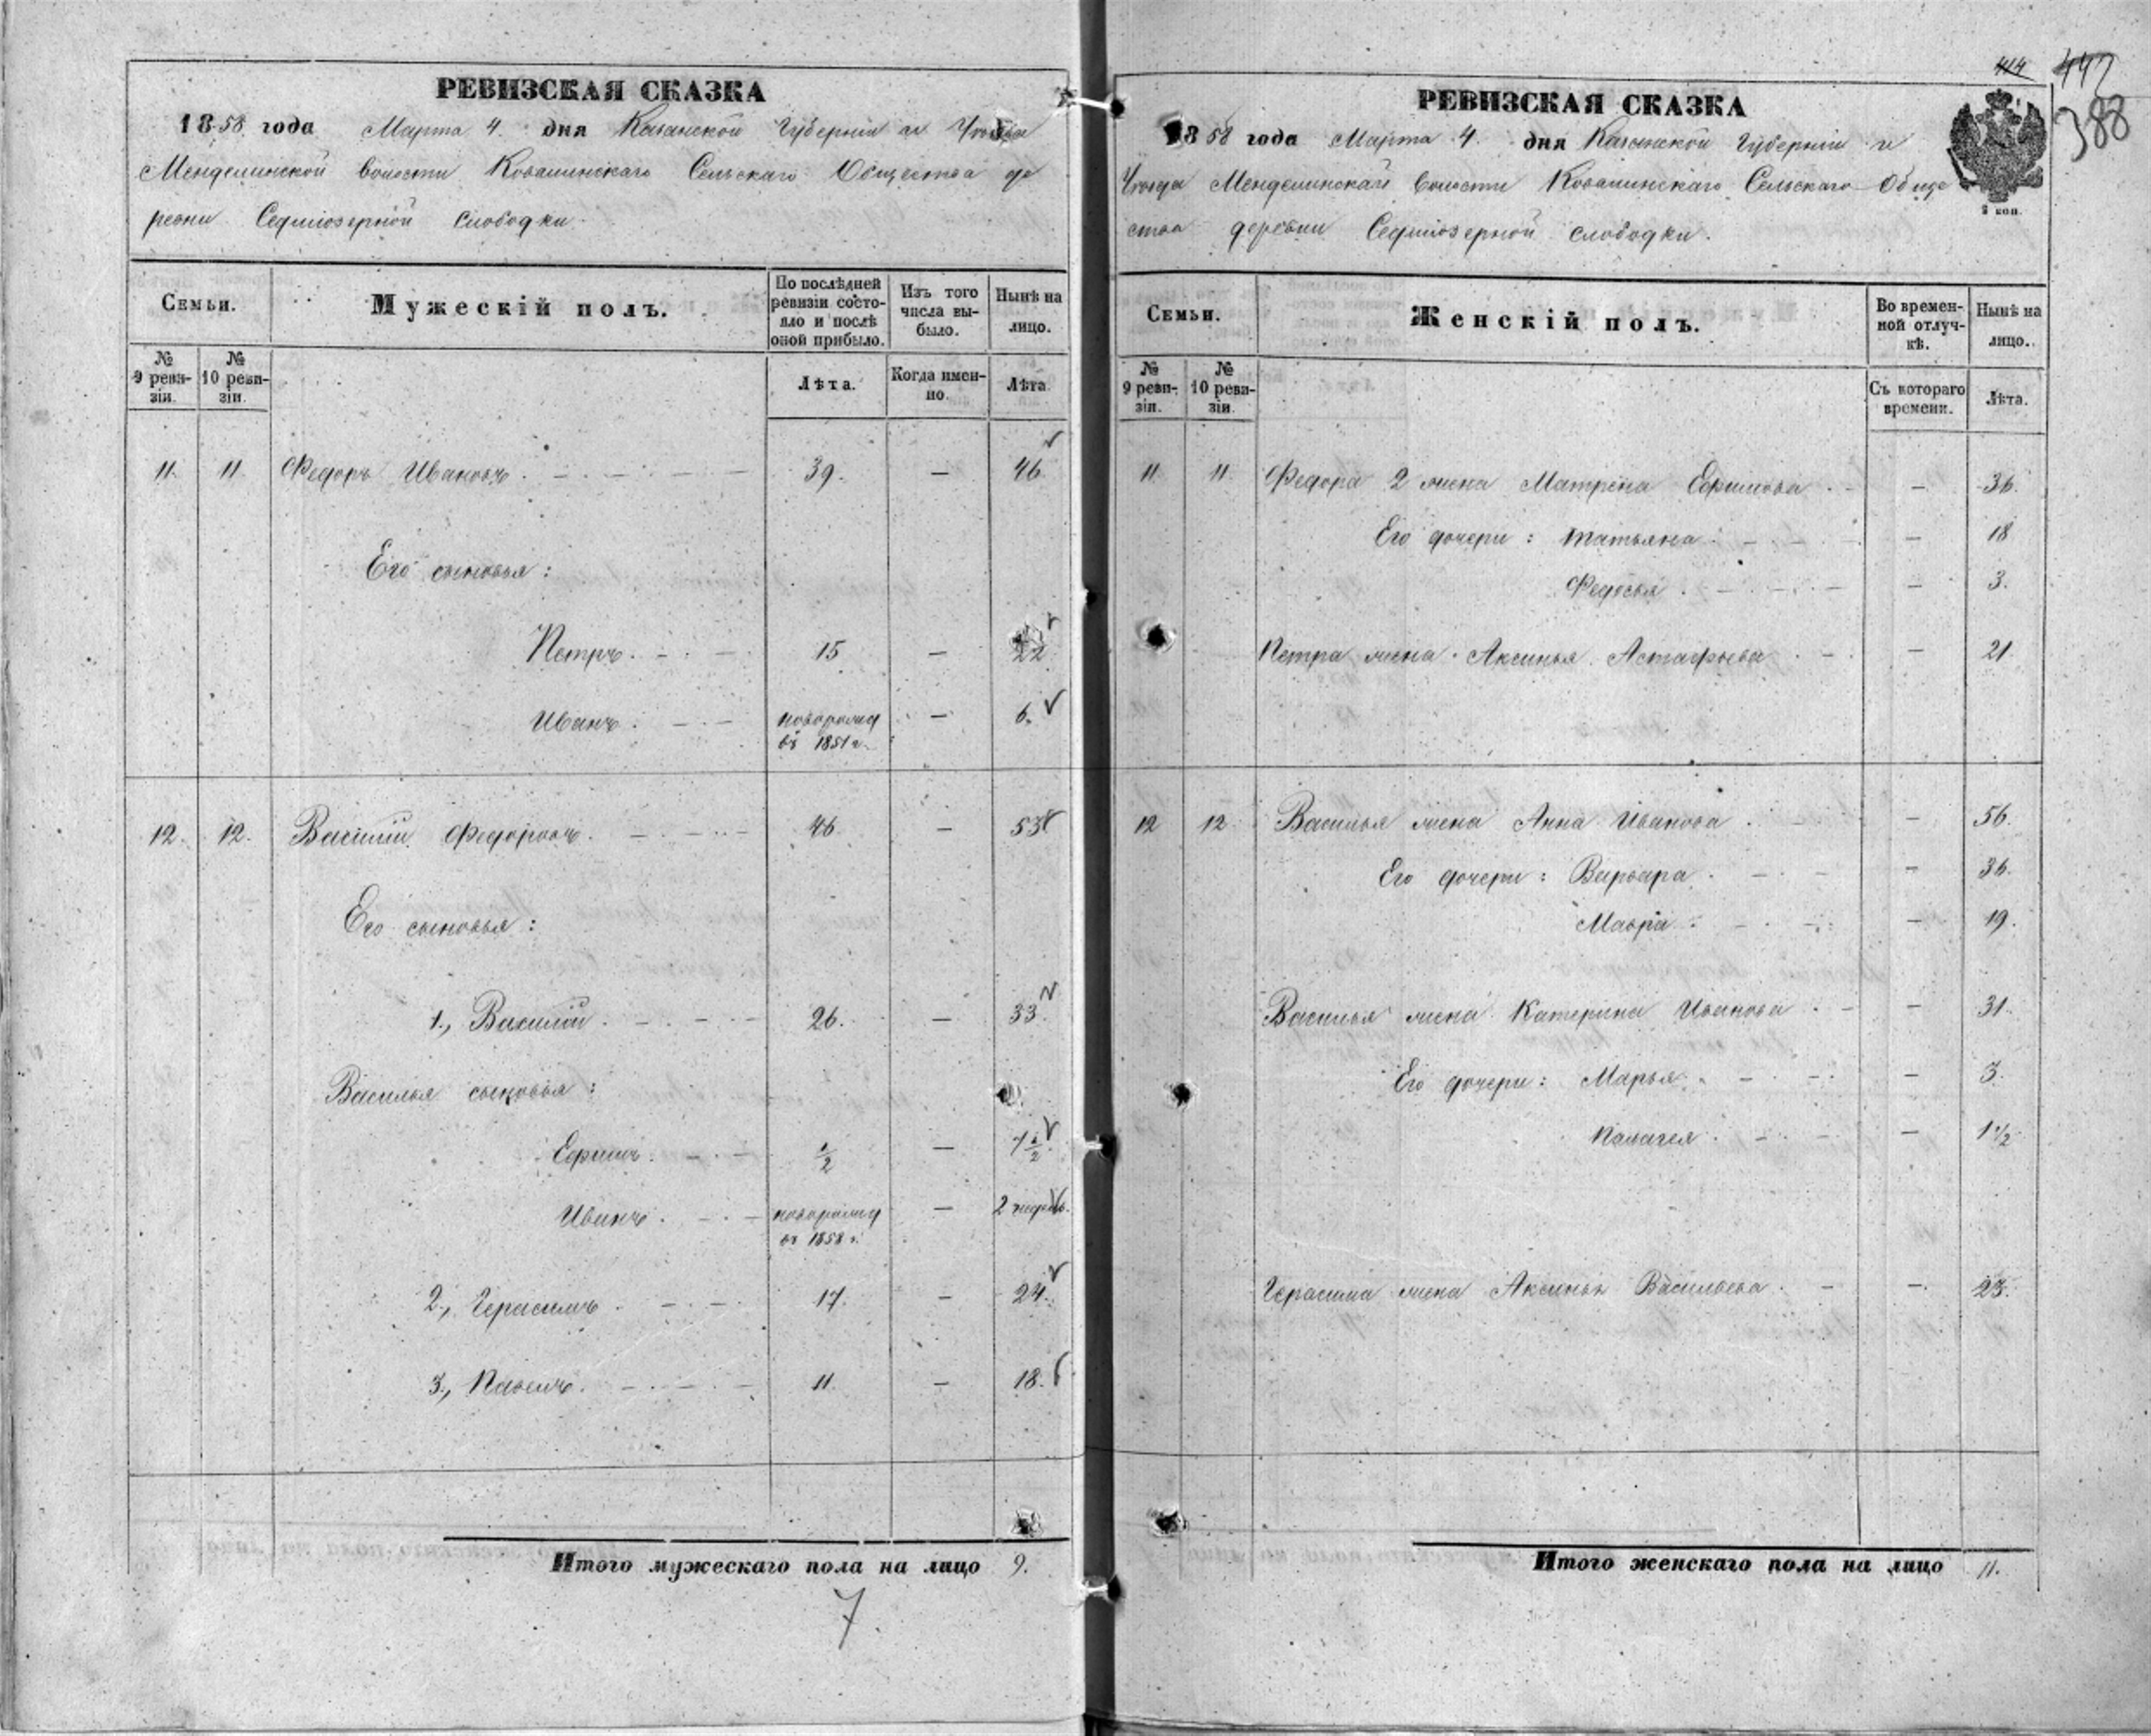 РЕВИЗСКАЯ СКАЗКА
1858 года Марта 4. дня Казанской Губернiи и Уѣзда
Менделинской волости Ковалинскаго Сельскаго Общества де
ревни Седмiозерной слободки.
Семьи.
Мужескiй полъ.
По послѣдней ревизiи состояло и послѣ оной прибыло.
Изъ того числа выбыло.
Ныпѣ на лицо.
№ 9 ревизiи.
№ 10 ревизiи.
Лѣта.
Когда именно.
Лѣта
11. 11. Федоръ Ивановъ. 39. — 46
Его сыновья:
Петръ. 15 — 22
Иванъ. новорожд — 6.
въ 1851 г.
12. 12. Василiй Федоровъ. 46 — 53
Его сыновья:
1., Василiй. 26. — 33.
Василья сыновья:
Ефимъ. 1/2 — 7 1/2
Иванъ. новорожд — 2 недѣль.
въ 1858 г.
2., Герасимъ. 17. — 24.
3., Павелъ. 11. — 18.
Итого мужескаго пола на лицо 9.
7.
414 447
388
РЕВИЗСКАЯ СКАЗКА
1858 года Марта 4. дня Казанской Губернiи и
Уѣзда Менделинской волости Ковалинскаго Сельскаго Обще
ства деревни Седмiозерной слободки.
2 коп.
Семьи.
Женскiй полъ.
Во временной отлучкѣ.
Нынѣ на лицо.
№ 9 ревизiи.
№ 10 ревизiи.
Съ котораго времени.
Лѣта.
11 11 Федора 2 жена Матрена Ефимова. — 36.
Его дочери: Татьяна. — 18
Федосья. — 3.
Петра жена Аксинья Астафьева. — 21
12 12 Василья жена Анна Иванова. — 56.
Его дочери: Варвара. — 36.
Мавра. — 19.
Василья жена Катерина Иванова. — 31.
Его дочери: Марья. — 3.
Палагея. — 1 1/2
Герасима жена Аксинья Васильева. — 23.
Итого женскаго пола на лицо 11.